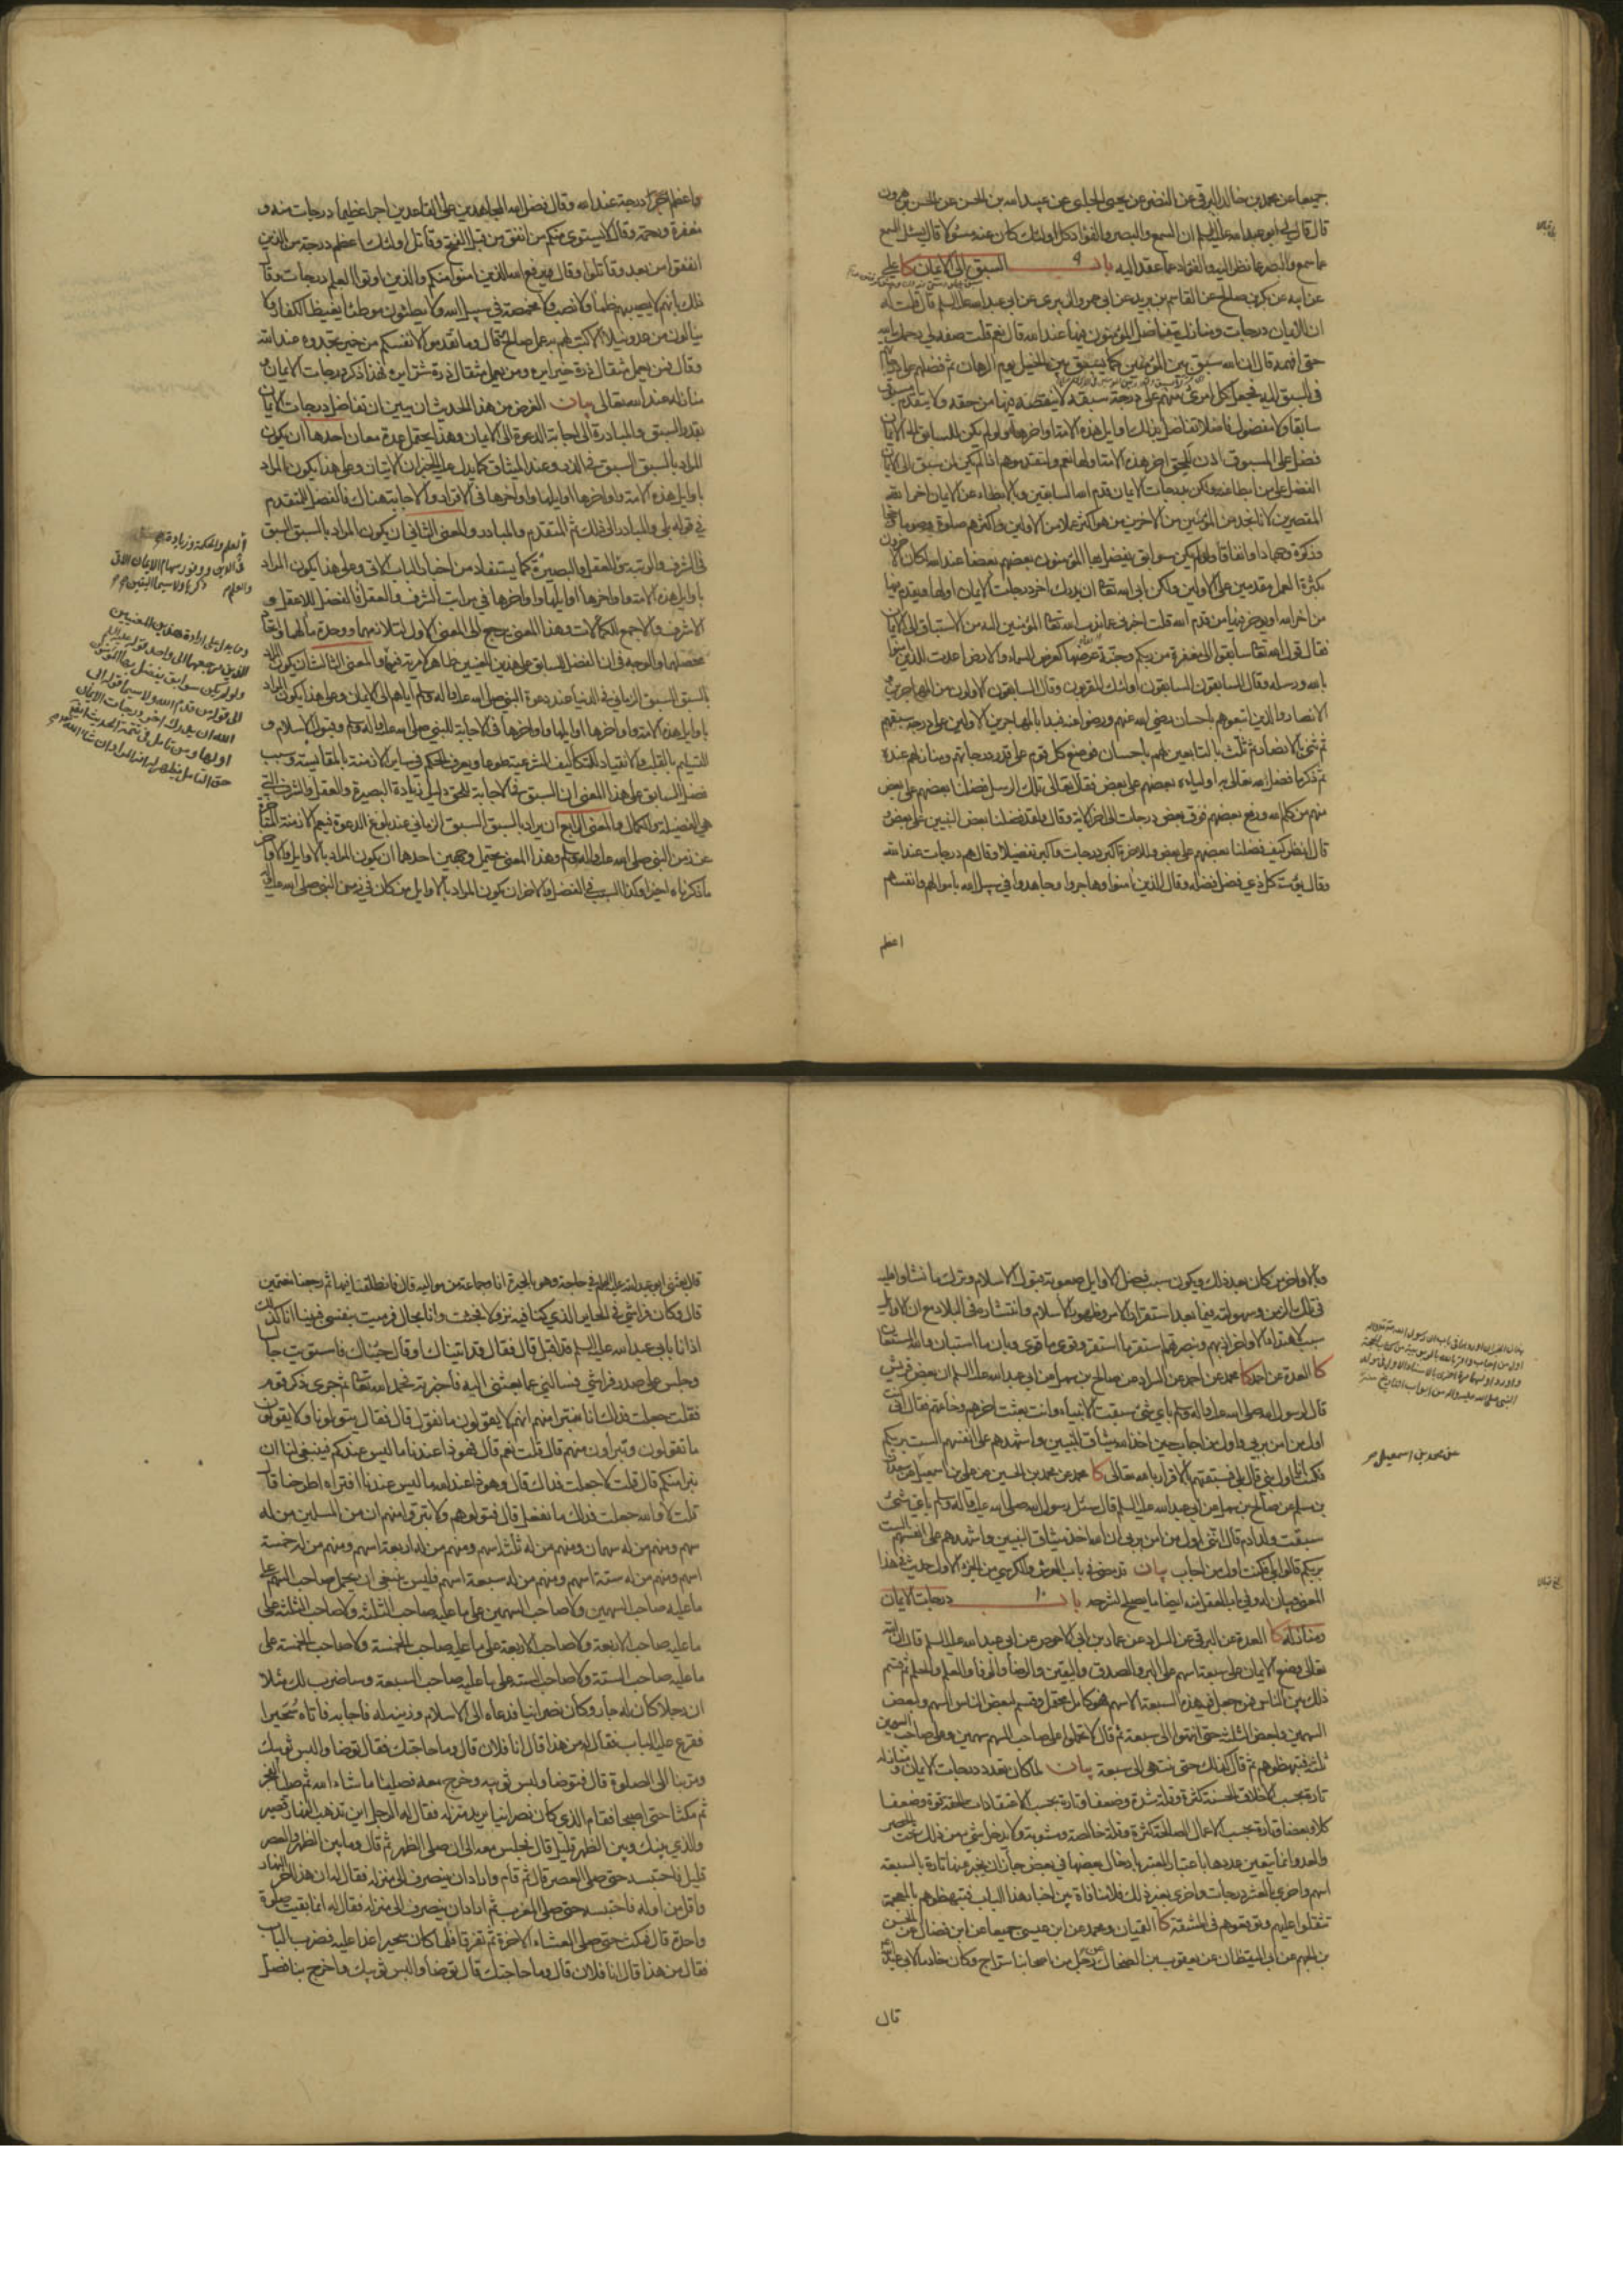 جميعا عن محمد بن خالد البرقي عن النضر عن يحيى الحلبي عن عبيد الله بن الحسن عن الحسن بن هرون
قال قال لي ابو عبد الله عليه السلم ان السمع والبصر والفؤاد كل اولئك كان عنه مسئولا قال يسئل السمع
عما سمع والبصر عما نظر اليه والفؤاد عما عقد اليه باب ٩ السبق الى الايمان كا علي
عن ابيه عن بكر بن صالح عن القاسم بن بريد عن ابي عمرو الزبيري عن ابي عبد الله عليه السلم قال قلت له
ان للايمان درجات ومنازل يتفاضل المؤمنون فيها عند الله قال نعم قلت صفه لي رحمك الله
حتى افهمه قال ان الله سبق بين المؤمنين كما يسبق بين الخيل يوم الرهان ثم فضلهم على درجاتهم
في السبق اليه فجعل كل امرئ منهم على درجة سبقه لا ينقصه فيها من حقه ولا يتقدم مسبوق
سابقا ولا مفضول فاضلا تفاضل بذلك اوايل هذه الامة اواخرها ولو لم يكن للسابق الى الايمان
فضل على المسبوق اذن للحق اخر هذه الامة اولها نعم ولتقدموهم اذا لم يكن لمن سبق الى الايمان
الفضل على من ابطا عنه ولكن بدرجات الايمان قدم الله السابقين وبالابطاء عن الايمان اخر الله
المقصرين لانا نجد من المؤمنين من الاخرين من هو اكثر عملا من الاولين واكثرهم صلوة وصوما وحجا
وزكوة وجهادا وانفاقا ولو لم يكن سوابق يفضل بها المؤمنون بعضهم بعضا عند الله لكان الاخرون
بكثرة العمل مقدمين على الاولين ولكن ابى الله تعالى ان يدرك اخر درجات الايمان اولها ويقدم فيها
من اخر الله او يؤخر فيها من قدم الله قلت اخبرني عما ندب الله تعالى المؤمنين اليه من الاستباق الى الايمان
فقال قول الله تعالى سابقوا الى مغفرة من ربكم وجنة عرضها كعرض السماء والارض اعدت للذين امنوا
بالله ورسله وقال السابقون السابقون اولئك المقربون وقال السابقون الاولون من المهاجرين
الانصار والذين اتبعوهم باحسان رضي الله عنهم ورضوا عنه فبدا بالمهاجرين الاولين على درجة سبقهم
ثم ثنى بالانصار ثم ثلث بالتابعين لهم باحسان فوضع كل قوم على قدر درجاتهم ومنازلهم عنده
ثم ذكر ما فضل الله تعالى به اولياءه بعضهم على بعض فقال تعالى تلك الرسل فضلنا بعضهم على بعض
منهم من كلم الله ورفع بعضهم فوق بعض درجات الى اخر الاية وقال ولقد فضلنا بعض النبيين على بعض
قال انظر كيف فضلنا بعضهم على بعض وللاخرة اكبر درجات واكبر تفضيلا وقال هم درجات عند الله
وقال يؤت كل ذي فضل فضله وقال الذين امنوا وهاجروا وجاهدوا في سبيل الله باموالهم وانفسهم
اعظم
واعظم اجرا درجة عند الله وقال فضل الله المجاهدين على القاعدين اجرا عظيما درجات منه و
مغفرة ورحمة وقال لا يستوي منكم من انفق من قبل الفتح وقاتل اولئك اعظم درجة من الذين
انفقوا من بعد وقاتلوا وقال يرفع الله الذين امنوا منكم والذين اوتوا العلم درجات وقال
ذلك بانهم لا يصيبهم ظمأ ولا نصب ولا مخمصة في سبيل الله ولا يطئون موطئا يغيظ الكفار ولا
ينالون من عدو نيلا الا كتب لهم به عمل صالح وقال وما تقدموا لانفسكم من خير تجدوه عند الله
وقال فمن يعمل مثقال ذرة خيرا يره ومن يعمل مثقال ذرة شرا يره فهذا ذكر درجات الايمان و
منازله عند الله تعالى بيان الغرض من هذا الحديث ان يبين ان تفاضل درجات الايمان
بقدر السبق والمبادرة الى اجابة الدعوة الى الايمان وهذا يحتمل عدة معان احدها ان يكون
المراد بالسبق السبق في الذر وعند الميثاق كما يدل عليه الخبران الاتيان وعلى هذا يكون المراد
باوايل هذه الامة واواخرها اوايلها واواخرها في الاقرار والاجابة هناك فالفضل للمتقدم
في قوله بلى والمبادر الى ذلك ثم المتقدم والمبادر والمعنى الثاني ان يكون المراد بالسبق السبق
في الشرف والرتبة والعقل والبصيرة كما يستفاد من اخبار الباب الاتي وعلى هذا يكون المراد
باوايل هذه الامة واواخرها اوايلها واواخرها في مراتب الشرف والعقل فالفضل للاعقل و
الاشرف والاجمع للكمالات وهذا المعنى يرجع الى المعنى الاول لتلازمهما ووحدة مآلهما واتحاد
محصلهما والوجه في ان الفضل للسابق على هذين المعنيين ظاهر لا مرية فيه والمعنى الثالث ان يكون المراد
بالسبق السبق الزماني في الدنيا عند دعوة النبي صلى الله عليه واله وسلم اياهم الى الايمان وعلى هذا يكون المراد
باوايل هذه الامة واواخرها اوايلها واواخرها في الاجابة للنبي صلى الله عليه واله وسلم وقبول الاسلام و
التسليم بالقلب والانقياد للتكاليف الشرعية طوعا ويعرف الحكم في ساير الازمنة بالمقايسة وسبب
فضل السابق على هذا المعنى ان السبق في الاجابة للحق دليل زيادة البصيرة والعقل والشرف التي
هي الفضيلة والكمال والمعنى الرابع ان يراد بالسبق السبق الزماني عند بلوغ الدعوة فيعم الازمنة المتاخرة
عن زمن النبي صلى الله عليه واله وسلم وهذا المعنى يحتمل وجهين احدهما ان يكون المراد بالاوايل والاواخر
ما ذكرناه اخيرا وكذا السبب في الفضل والاخر ان يكون المراد بالاوايل من كان في زمن النبي صلى الله عليه واله
العلم والحكمة وزيادة
في الدين ووفور سهام الايمان الاتي
ذكرها ولا سيما اليقين
ومما يدل على ارادة هذين المعنيين
الذين مرجعهما الى واحد قوله عليه السلم
ولو لم يكن سوابق يفضل بها المؤمنون
الى قوله من قدم الله ولا سيما قوله ابى
الله ان يدرك اخر درجات الايمان
اولها ومن تامل في تتمة الحديث ايضا
حق التامل يظهر له انه المراد ان شاء الله
وبالاواخر من كان بعد ذلك ويكون سبب فضل الاوايل صعوبة قبول الاسلام وترك ما نشاوا عليه
في ذلك الزمن وسهولته فيما بعد استقرار الامر وظهور الاسلام وانتشاره في البلاد مع ان الاوايل
سبب لاهتداء الاواخر اذ بهم وبنصرتهم استقر ما استقر وقوي ما قوي وبان ما استبان والله المستعان
كا العدة عن احمد كا محمد عن احمد عن السراد عن صالح بن سهل عن ابي عبد الله عليه السلم ان بعض قريش
قال لرسول الله صلى الله عليه واله وسلم باي شئ سبقت الانبياء وانت بعثت اخرهم وخاتمهم فقال اني كنت
اول من امن بربي واول من اجاب حين اخذ الله ميثاق النبيين واشهدهم على انفسهم الست بربكم
فكنت انا اول نبي قال بلى فسبقتهم بالاقرار بالله تعالى كا محمد عن محمد بن الحسين عن علي بن اسمعيل عن سعدان
بن مسلم عن صالح بن سهل عن ابي عبد الله عليه السلم قال سئل رسول الله صلى الله عليه واله وسلم باي شئ
سبقت ولد ادم قال انني اول من امن بربي ان الله اخذ ميثاق النبيين واشهدهم على انفسهم الست
بربكم قالوا بلى فكنت اول من اجاب بيان قد مضى في باب العرش والكرسي من الجزء الاول حديث في هذا
المعنى وبيان له وفي باب العقل منه ايضا ما يصلح لشرحه باب ١٠ درجات الايمان
ومنازله كا العدة عن البرقي عن السراد عن عمار بن ابي الاحوص عن ابي عبد الله عليه السلم قال ان الله
تعالى وضع الايمان على سبعة اسهم على البر والصدق واليقين والرضا والوفاء والعلم والحلم ثم قسم
ذلك بين الناس فمن جعل فيه هذه السبعة الاسهم فهو كامل محتمل وقسم لبعض الناس السهم ولبعض
السهمين ولبعض الثلثة حتى انتهوا الى سبعة ثم قال لا تحملوا على صاحب السهم سهمين وعلى صاحب السهمين
ثلثة فتبهظوهم ثم قال كذلك حتى ينتهي الى سبعة بيان لما كان تعدد درجات الايمان ومنازله
تارة بحسب الاخلاق الحسنة كثرة وقلة شدة وضعفا وتارة بحسب الاعتقادات الحقة قوة وضعفا
كلا وبعضا وتارة بحسب الاعمال الصالحة كثرة وقلة خالصة ومشوبة ولا يدخل شئ من ذلك تحت الحصر
والعد وانما يتعين عددها باعتبار المعتبر بادخال بعضها في بعض جاز ان يخبر عنها تارة بالسبعة
اسهم واخرى بالعشر درجات واخرى بغير ذلك فلا منافاة بين اخبار هذا الباب فتبهظوهم بالمعجمة
تثقلوا عليهم وتوقعوهم في المشقة كا القميان ومحمد عن ابن عيسى جميعا عن ابن فضال عن الحسن
بن الجهم عن ابي اليقظان عن يعقوب بن الضحاك عن رجل من اصحابنا سراج وكان خادما لابي عبد الله
قال
عن محمد بن اسمعيل
قال بعثني ابو عبد الله عليه السلم في حاجة وهو بالحيرة انا وجماعة من مواليه قال فانطلقنا فيها ثم رجعنا مغتمين
قال وكان فراشي في الحاير الذي كنا فيه نزولا فجئت وانا بحال فرميت بنفسي فبينا انا كذلك
اذا انا بابي عبد الله عليه السلم قد اقبل قال فقال قد اتيناك او قال جئناك فاستويت جالسا
وجلس على صدر فراشي فسالني عما بعثني اليه فاخبرته فحمد الله تعالى ثم جرى ذكر قوم
فقلت جعلت فداك انا نبرا منهم انهم لا يقولون ما نقول قال فقال يتولونا ولا يقولون
ما تقولون وتبراون منهم قال قلت نعم قال فهو ذا عندنا ما ليس عندكم فينبغي لنا ان
نبرا منكم قال قلت لا جعلت فداك قال وهو ذا عند الله ما ليس عندنا افتراه اطرحنا قال
قلت لا والله جعلت فداك ما نفعل قال فتولوهم ولا تبرءوا منهم ان من المسلمين من له
سهم ومنهم من له سهمان ومنهم من له ثلثة اسهم ومنهم من له اربعة اسهم ومنهم من له خمسة
اسهم ومنهم من له ستة اسهم ومنهم من له سبعة اسهم فليس ينبغي ان يحمل صاحب السهم على
ما عليه صاحب السهمين ولا صاحب السهمين على ما عليه صاحب الثلثة ولا صاحب الثلثة على
ما عليه صاحب الاربعة ولا صاحب الاربعة على ما عليه صاحب الخمسة ولا صاحب الخمسة على
ما عليه صاحب الستة ولا صاحب الستة على ما عليه صاحب السبعة وساضرب لك مثلا
ان رجلا كان له جار وكان نصرانيا فدعاه الى الاسلام وزينه له فاجابه فاتاه سحيرا
فقرع عليه الباب فقال له من هذا قال انا فلان قال وما حاجتك فقال توضا والبس ثوبيك
ومر بنا الى الصلوة قال فتوضا ولبس ثوبيه وخرج معه فصليا ما شاء الله ثم صليا الفجر
ثم مكثا حتى اصبحا فقام الذي كان نصرانيا يريد منزله فقال له الرجل اين تذهب النهار قصير
والذي بينك وبين الظهر قليل قال فجلس معه الى ان صلى الظهر ثم قال وما بين الظهر والعصر
قليل فاحتبسه حتى صلى العصر قال ثم قام واراد ان ينصرف الى منزله فقال له ان هذا اخر النهار
واقل من اوله فاحتبسه حتى صلى المغرب ثم اراد ان ينصرف الى منزله فقال له انما بقيت صلوة
واحدة قال فمكث حتى صلى العشاء الاخرة ثم تفرقا فلما كان سحيرا غدا عليه فضرب الباب
فقال من هذا قال انا فلان قال وما حاجتك قال توضا والبس ثوبيك واخرج بنا فصل